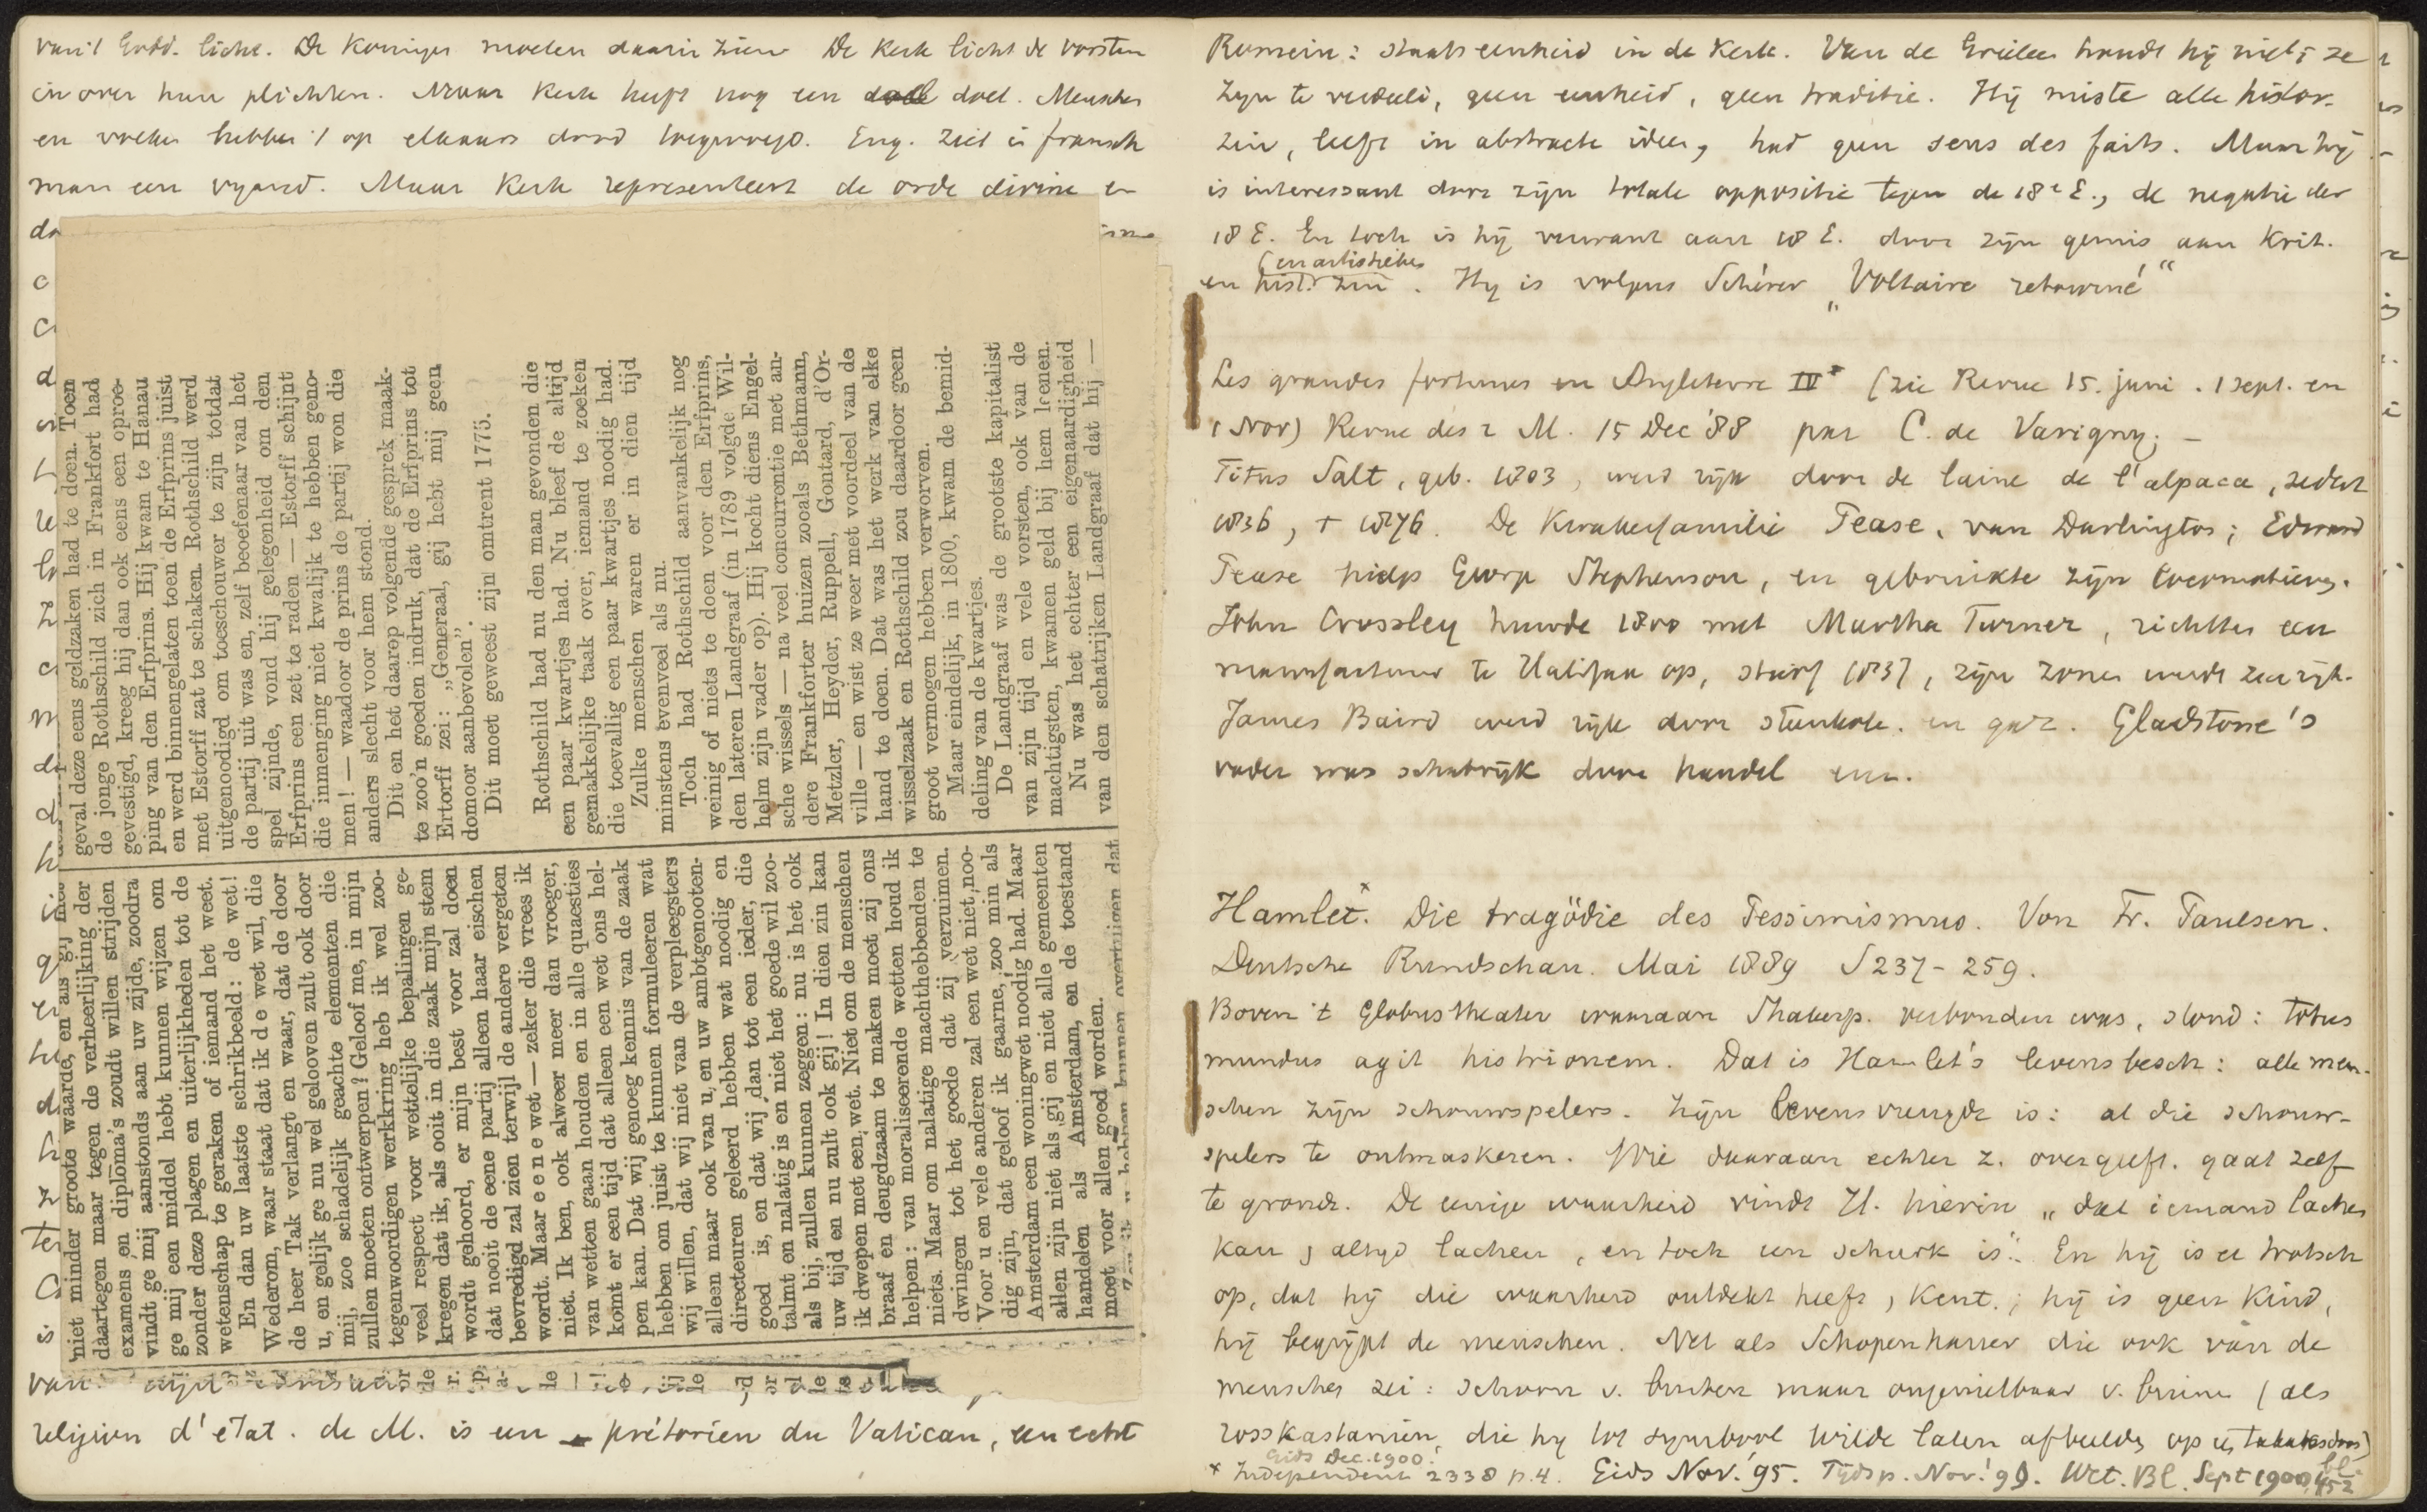 van 't Godd. licht. De Koningen moeten daarin zien De Kerk licht de vorsten
in over hun plichten. Maar Kerk heeft nog een doel. Menschen
en volken hebben 't op elkaars dood toegelegd. Eng. ziet in fransch
man een vyand. Maar Kerk representeert de orde divine en
geval deze eens geldzaken had te doen. Toen
de jonge Rothschild zich in Frankfort had
gevestigd, kreeg hij dan ook eens een oproe-
ping van den Erfprins. Hij kwam te Hanau
en werd binnengelaten toen de Erfprins juist
met Estorff zat te schaken. Rothschild werd
uitgenoodigd om toeschouwer te zijn totdat
de partij uit was en, zelf beoefenaar van het
spel zijnde, vond hij gelegenheid om den
Erfprins een zet te raden — Estorff schijnt
die inmenging niet kwalijk te hebben geno-
men! — waardoor de prins de partij won die
anders slecht voor hem stond.
Dit en het daarop volgende gesprek maak-
te zoo'n goeden indruk, dat de Erfprins tot
Ertorff zei: „Generaal, gij hebt mij geen
domoor aanbevolen”.
Dit moet geweest zijn omtrent 1775.
Rothschild had nu den man gevonden die
een paar kwartjes had. Nu bleef de altijd
gemakkelijke taak over, iemand te zoeken
die toevallig een paar kwartjes noodig had.
Zulke menschen waren er in dien tijd
minstens evenveel als nu.
Toch had Rothschild aanvankelijk nog
weinig of niets te doen voor den Erfprins,
den lateren Landgraaf (in 1789 volgde Wil-
helm zijn vader op). Hij kocht diens Engel-
sche wissels — na veel concurrentie met an-
dere Frankforter huizen zooals Bethmann,
Metzler, Heyder, Ruppell, Gontard, d'Or-
ville — en wist ze weer met voordeel van de
hand te doen. Dat was het werk van elke
wisselzaak en Rothschild zou daardoor geen
groot vermogen hebben verworven.
Maar eindelijk, in 1800, kwam de bemid-
deling van de kwartjes.
De Landgraaf was de grootste kapitalist
van zijn tijd en vele vorsten, ook van de
machtigsten, kwamen geld bij hem leenen.
Nu was het echter een eigenaardigheid
van den schatrijken Landgraaf dat hij —
niet minder groote waarde, en als gij niet
daartegen maar tegen de verheerlijking der
examens en diploma's zoudt willen strijden
vindt ge mij aanstonds aan uw zijde, zoodra
ge mij een middel hebt kunnen wijzen om
zonder deze plagen en uiterlijkheden tot de
wetenschap te geraken of iemand het weet.
En dan uw laatste schrikbeeld: de wet!
Wederom, waar staat dat ik de wet wil, die
de heer Tak verlangt en waar, dat de door
u, en gelijk ge nu wel gelooven zult ook door
mij, zoo schadelijk geachte elementen die
zullen moeten ontwerpen? Geloof me, in mijn
tegenwoordigen werkkring heb ik wel zoo-
veel respect voor wettelijke bepalingen ge-
kregen dat ik, als ooit in die zaak mijn stem
wordt gehoord, er mijn best voor zal doen
dat nooit de eene partij alleen haar eischen
bevredigd zal zien terwijl de andere vergeten
wordt. Maar eene wet — zeker die vrees ik
niet. Ik ben, ook alweer meer dan vroeger,
van wetten gaan houden en in alle quaesties
komt er een tijd dat alleen een wet ons hel-
pen kan. Dat wij genoeg kennis van de zaak
hebben om juist te kunnen formuleeren wat
wij willen, dat wij niet van de verpleegsters
alleen maar ook van u, en uw ambtgenooten-
directeuren geleerd hebben wat noodig en
goed is, en dat wij dan tot een ieder, die
talmt en nalatig is en niet het goede wil zoo-
als bij, zullen kunnen zeggen: nu is het ook
uw tijd en nu zult ook gij! In dien zin kan
ik dwepen met een wet. Niet om de menschen
braaf en deugdzaam te maken moet zij ons
helpen: van moraliseerende wetten houd ik
niets. Maar om nalatige machthebbenden te
dwingen tot het goede dat zij verzuimen.
Voor u en vele anderen zal een wet niet noo-
dig zijn, dat geloof ik gaarne, zoo min als
Amsterdam een woningwet noodig had. Maar
allen zijn niet als gij en niet alle gemeenten
handelen als Amsterdam, en de toestand
moet voor allen goed worden.
religion d'état. de M. is een prétorien du Vatican, een echt
Romein: staatseenheid in de Kerk. Van de Grieken houdt hij niet; ze
zijn te verdeeld, geen eenheid, geen traditie. Hij miste alle histor.
zin, leeft in abstracte ideen, had geen sens des faits. Maar hij
is interessant door zijn totale oppositie tegen de 18e E., de negatie der
18 E. En toch is hij verwant aan 18 E. door zijn gemis aan Krit.
(en artistieken
en hist. zin. Hy is volgens Schérer „Voltaire retourné“
Les grandes fortunes en Angleterre IV* (zie Revue 15. juni. 1 sept. en
1 Nov) Revue des 2 M. 15 Dec '88 par C. de Varigny. —
Titus Salt, geb. 1803, werd rijk door de laine de l'alpaca, sedert
1836, † 1876. De Kwakerfamilie Pease, van Darlington; Edward
Pease hielp George Stephenson, en gebruikte zijn locomotieven.
John Crossley huwde 1800 met Martha Turner, richtte een
manufactuur te Halifax op, stierf 1837, zijn zonen werden zeer rijk.
James Baird werd rijk door steenkole. en gaz. Gladstone's
vader was schatrijk door handel enz.
Hamlet.* Die tragödie des Pessimismus. Von Fr. Paulsen.
Deutsche Rundschau. Mai 1889 S 237-259.
Boven 't Globustheater waaraan Shakesp. verbonden was, stond: totus
mundus agit histrionem. Dat is Hamlet's levensbesch: alle men-
schen zijn schouwspelers. Zijn levensvreugde is: al die schouw-
spelers te ontmaskeren. Wie daaraan echter z. overgeeft, gaat zelf
te gronde. De eenige waarheid vindt H. hierin „dat iemand lachen
kan, altyd lachen, en toch een schurk is“. En hij is er trotsch
op, dat hij die waarheid ontdekt heeft, Kent.; hij is geen Kind,
hij begrijpt de menschen. Net als Schopenhauer die ook van de
menschen zei: schoon v. buiten maar ongenietbaar v. binnen (als
rosskastanien, die hij tot symbool wilde laten afbeelden op z. tabaksdoos)
Gids Dec. 1900.
* Independent 2338 p. 4. Gids Nov. '95. Tijdsp. Nov. '99. Wet. Bl. Sept 1900, bl. 452